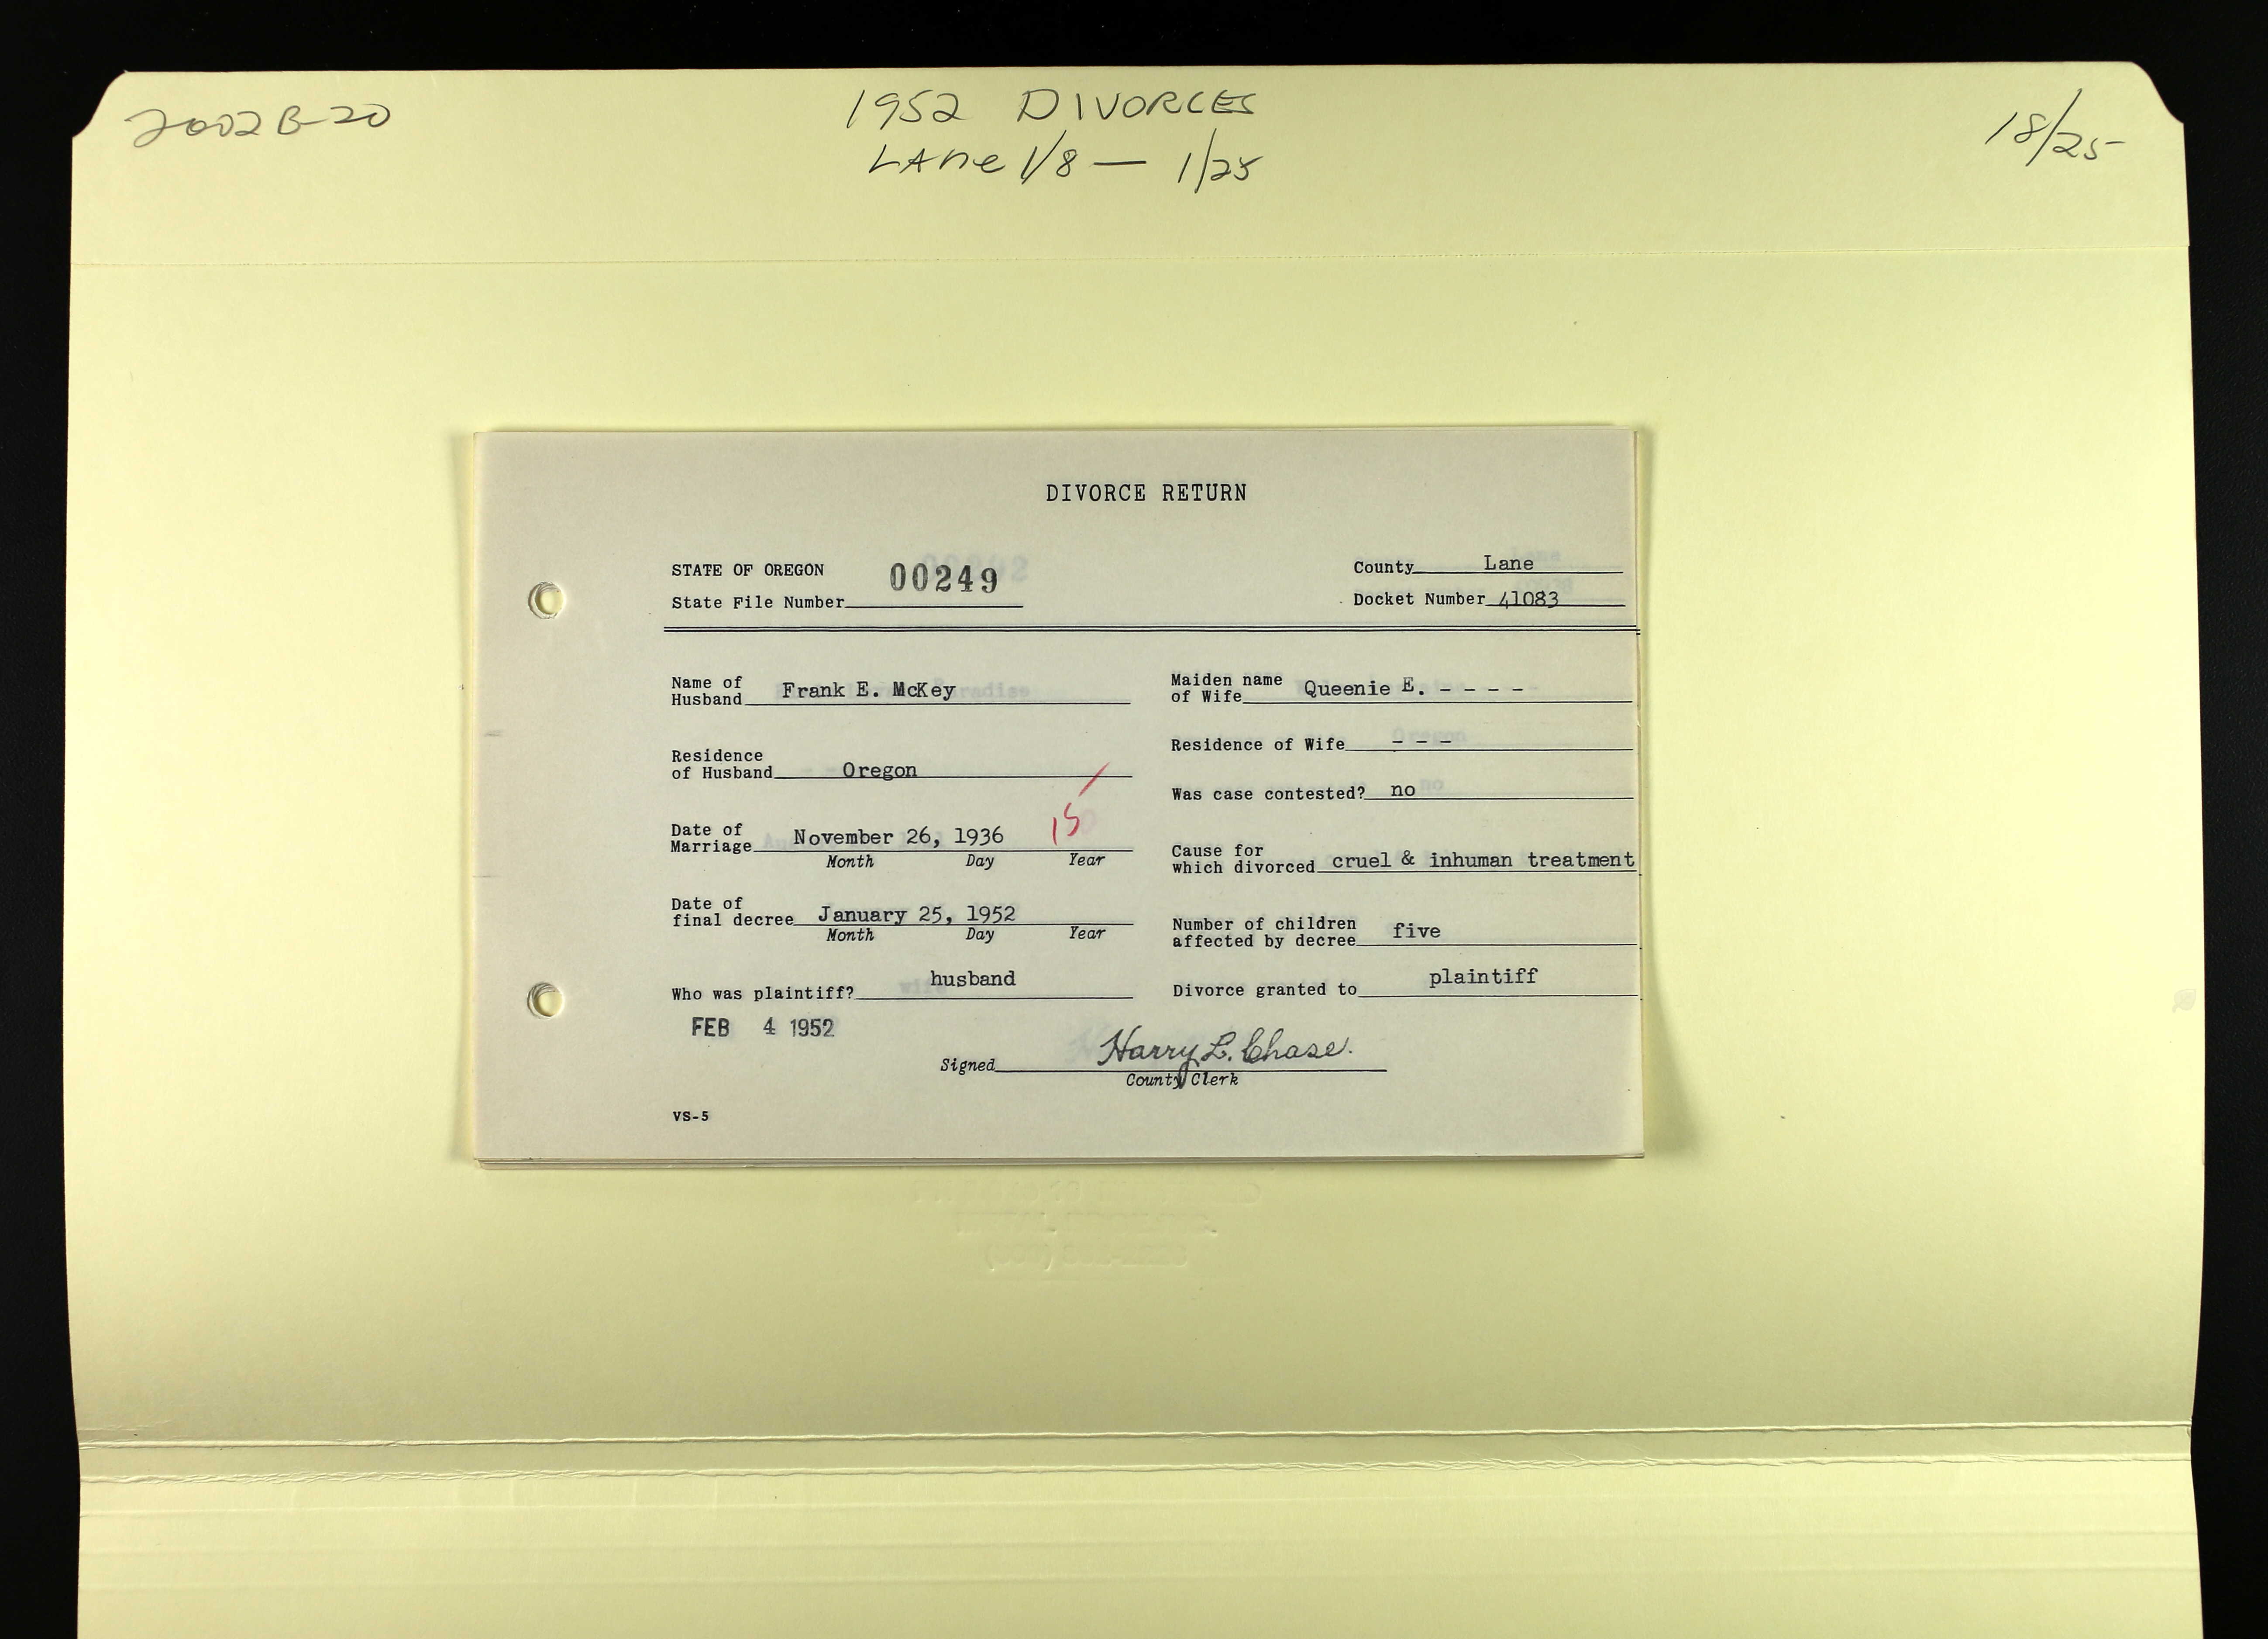 2002B-20
1952 DIVORCES
LANe 1/8 — 1/25
18/25
DIVORCE RETURN
STATE OF OREGON
State File Number 00249
County Lane
Docket Number 41083
Name of Husband Frank E. McKey
Maiden name of Wife Queenie E. - - - -
Residence of Husband Oregon
Residence of Wife - - -
Was case contested? no
Date of Marriage November 26, 1936
15
Month Day Year
Cause for which divorced cruel & inhuman treatment
Date of final decree January 25, 1952
Month Day Year
Number of children affected by decree five
Who was plaintiff? husband
Divorce granted to plaintiff
FEB 4 1952
Signed Harry L. Chase.
County Clerk
VS-5